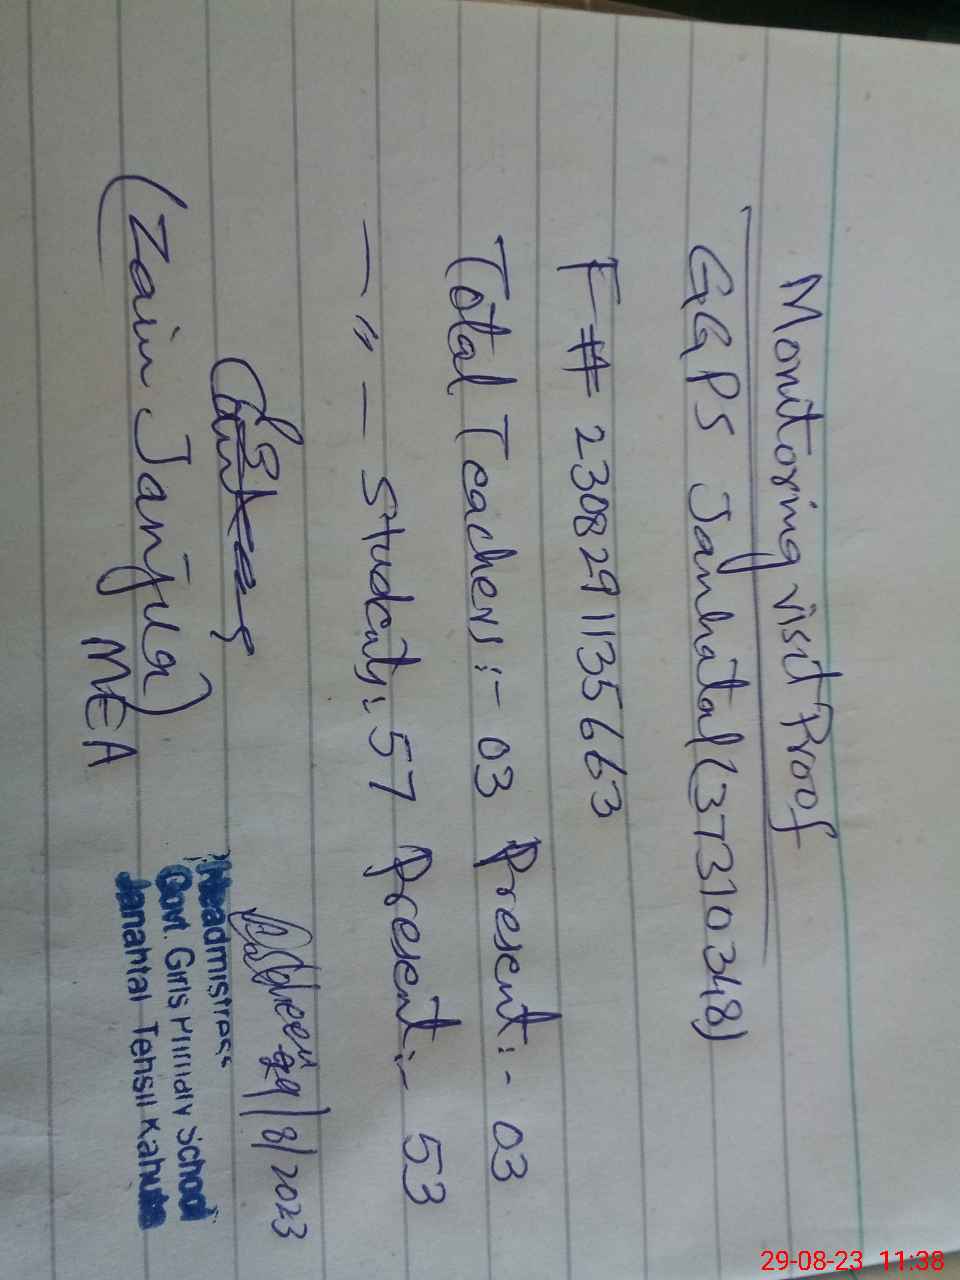 Monitoring visit Proof
GGPS Janhatal (37310348)
F# 230829 1135663
Total Teachers:- 03 Present:- 03
— " — Students:- 57 Present:- 53
29/8/2023
(Zain Janjua)
MEA
Headmistress
Govt. Girls Primary School
Janahtal Tehsil Kahuta
29-08-23 11:38